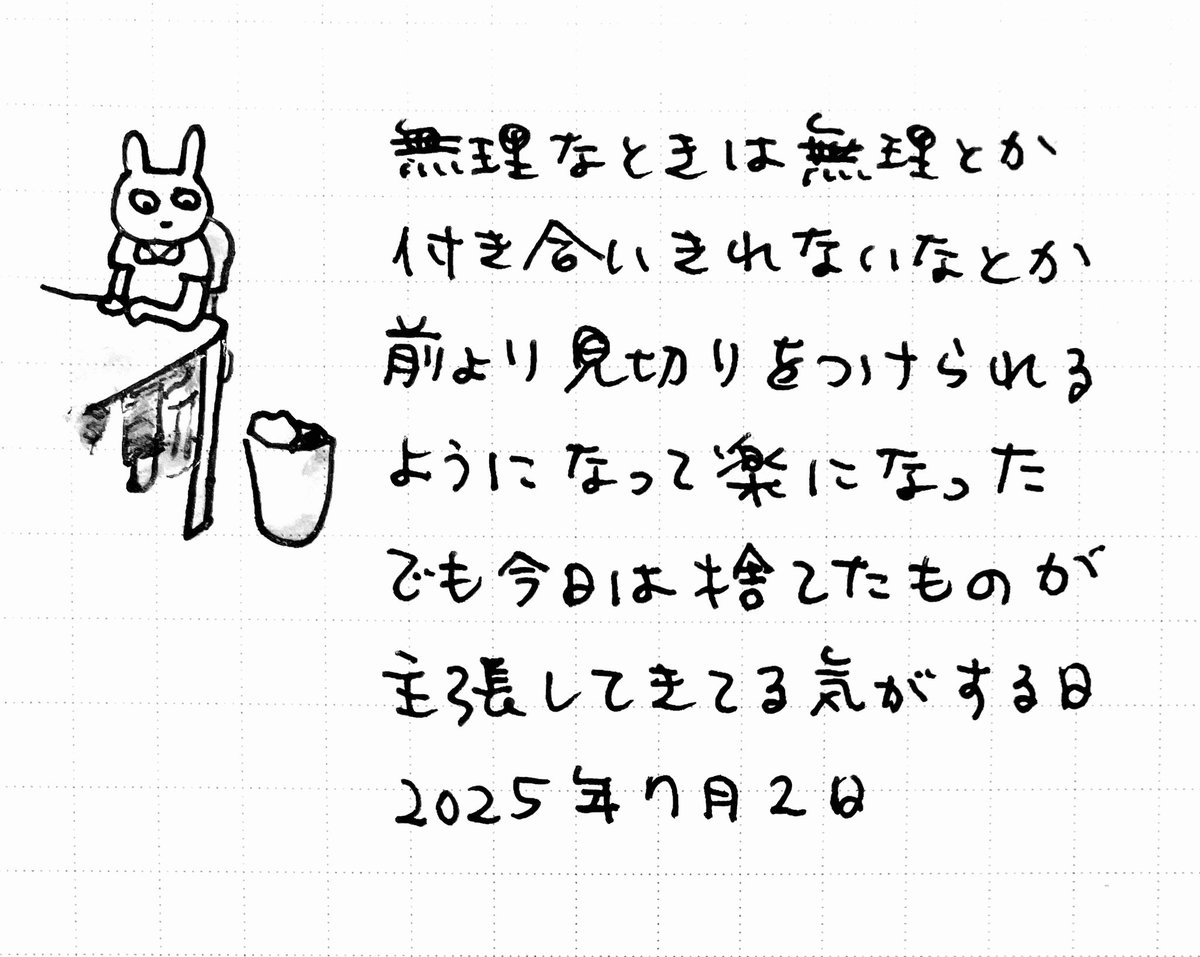 無理なときは無理とか
付き合いきれないなとか
前より見切りをつけられる
ようになって楽になった
でも今日は捨てたものが
主張してきてる気がする日
2025年7月2日